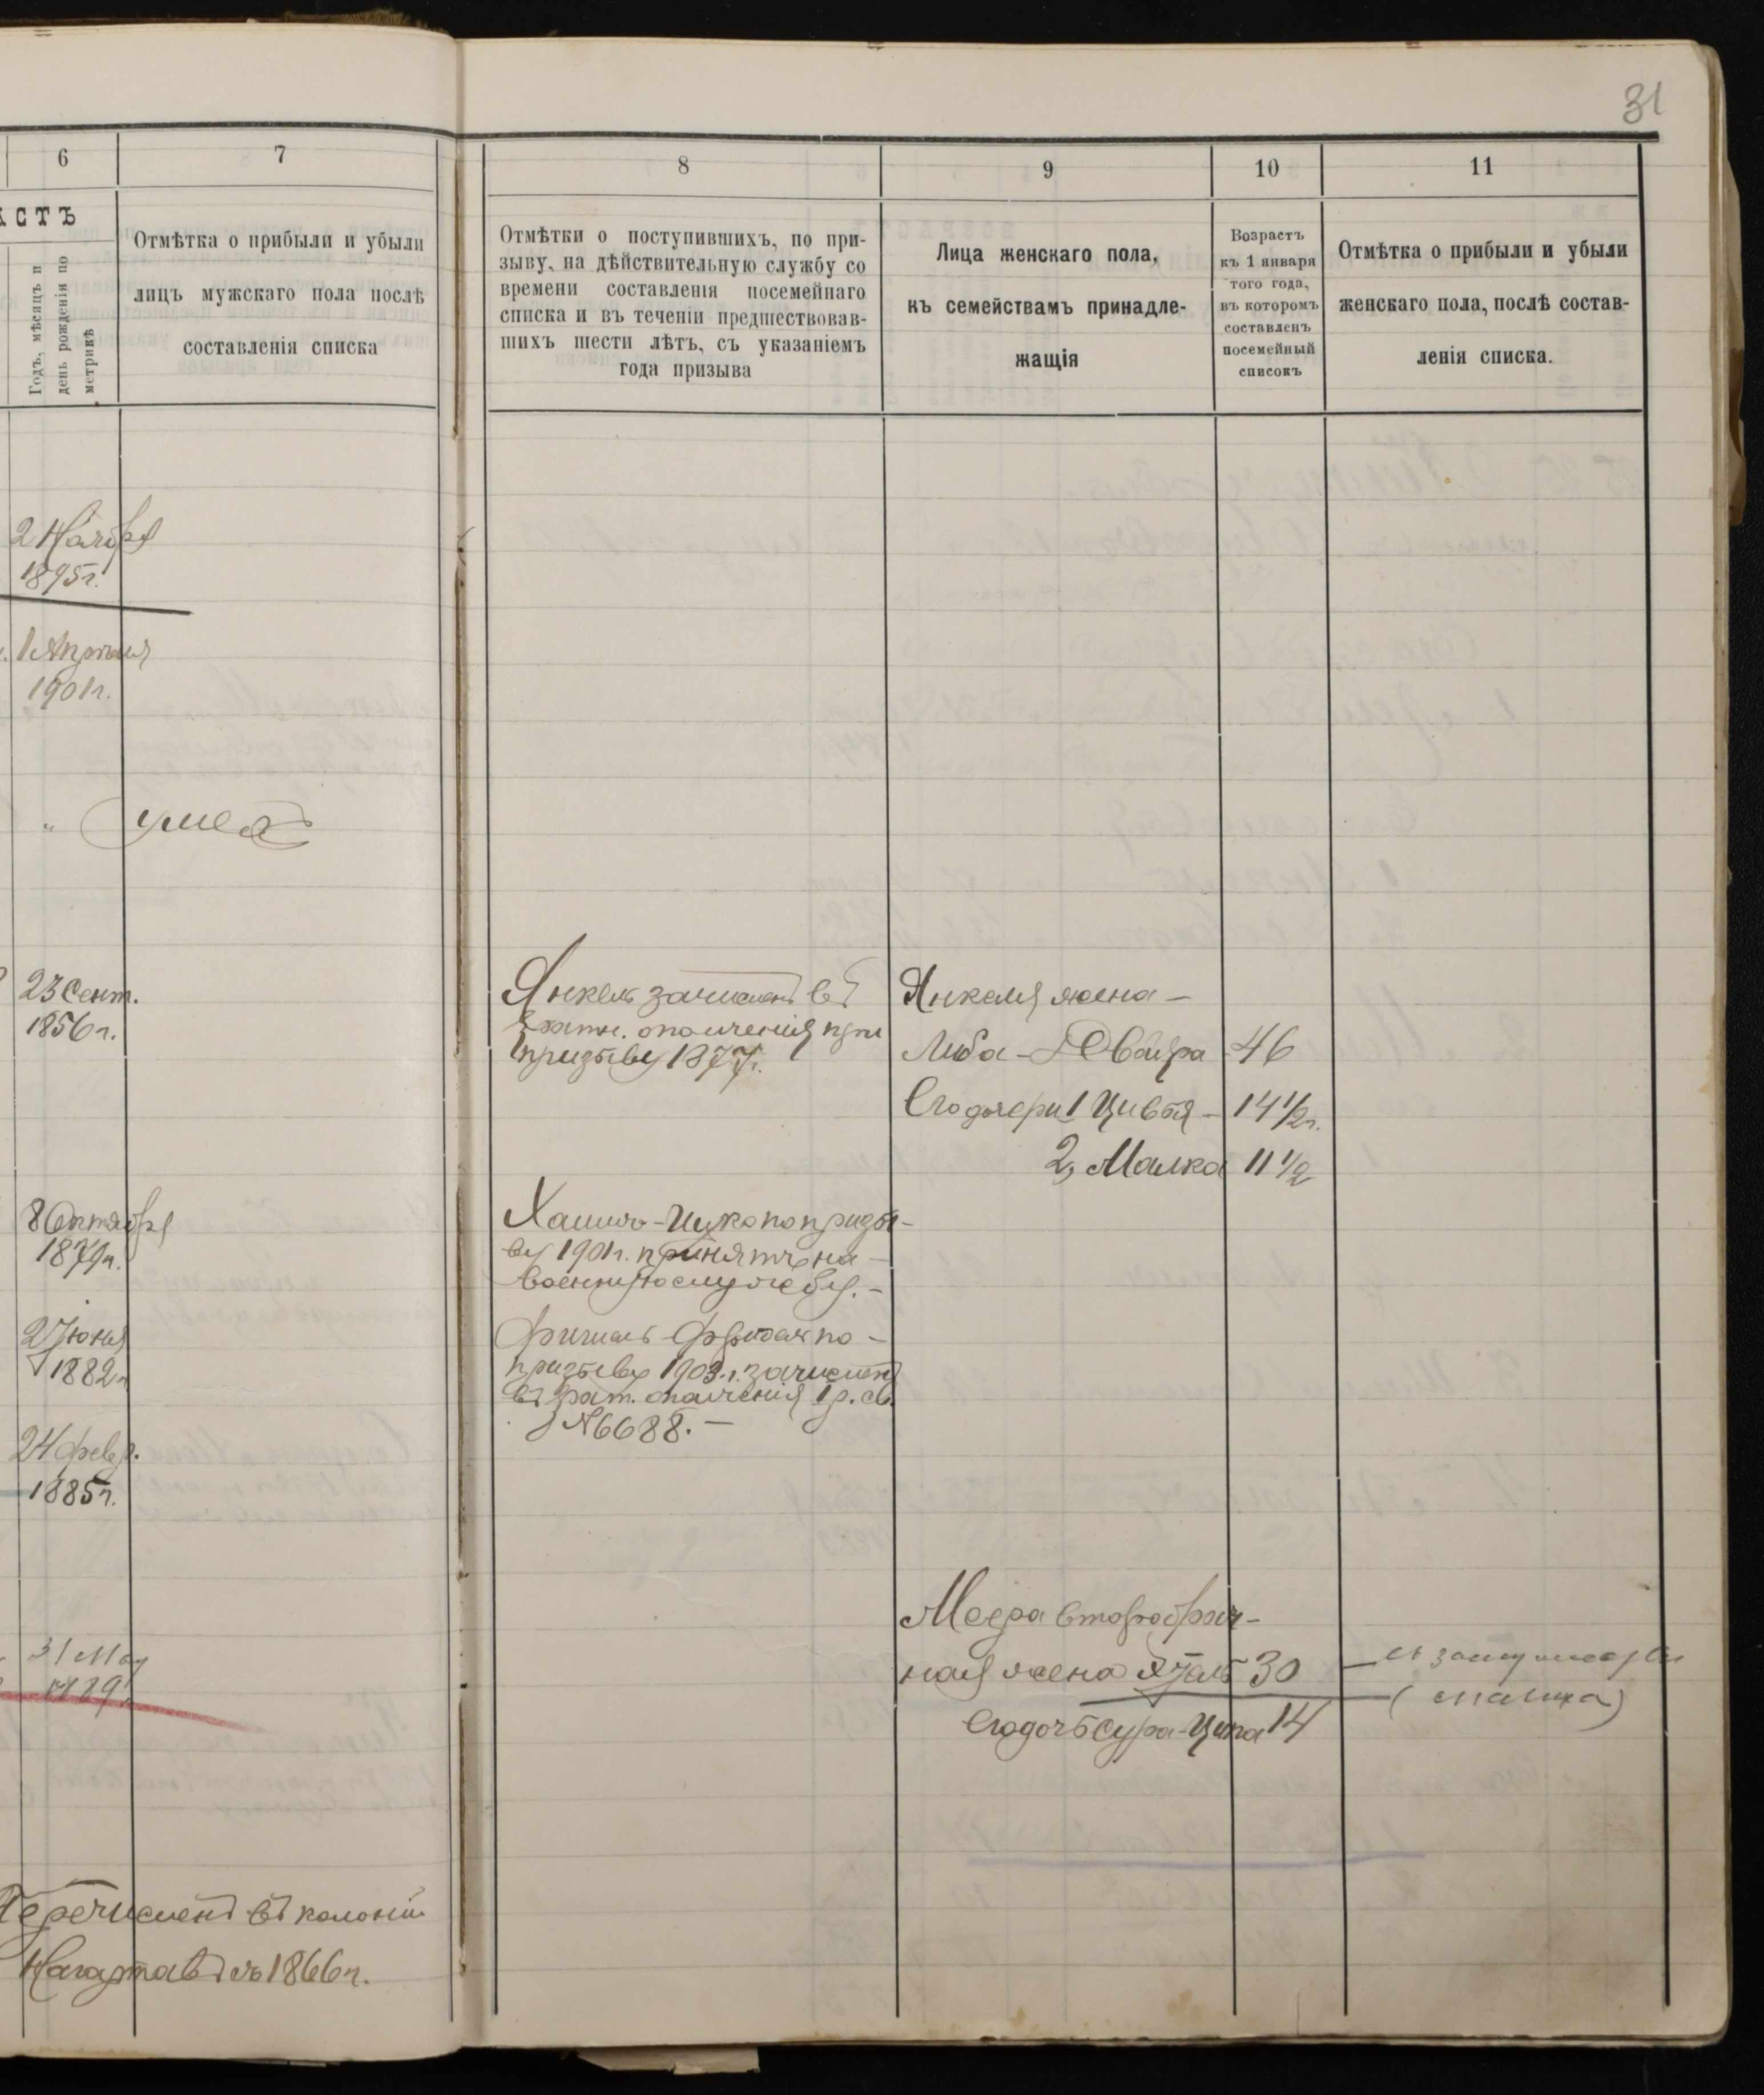 31
6
7
8
9
10
11
АСТЪ
Годъ, мѣсяцъ и
день рожденія по
метрикѣ
Отмѣтка о прибыли и убыли
лицъ мужскаго пола послѣ
составленія списка
Отмѣтки о поступившихъ, по при-
зыву, на дѣйствительную службу со
времени составленія посемейнаго
списка и въ теченіи предшествовав-
шихъ шести лѣтъ, съ указаніемъ
года призыва
Лица женскаго пола,
къ семействамъ принадле-
жащія
Возрастъ
къ 1 января
того года,
въ которомъ
составленъ
посемейный
списокъ
Отмѣтка о прибыли и убыли
женскаго пола, послѣ состав-
ленія списка.
2 Ноября
1895г.
1 Апрѣля
1901г.
" умеръ
23 Сент.
1856г.
Янкель зачисленъ въ
ратн. ополченія при
призыву 1877г.
Янкеля жена –
Либа-Двейра 46
Его дочери 1 Цивья – 14 1/2 г.
2, Малка 11 1/2
8 Октября
1879г.
Хаимъ- по призы-
ву 1901г. принятъ на
военную службу. –
2 Іюня
1882г.
по –
призыву 1903г. зачисленъ
въ рат. ополченія 1 р. св.
№6688. –
24 февр.
1885г.
31 Мая
1889
Меера второбрач-
ная жена 30
– замужествѣ
Его дочь Сура-Ципа 14
Перечисленъ въ колонію
Нагартавъ съ 1866г.